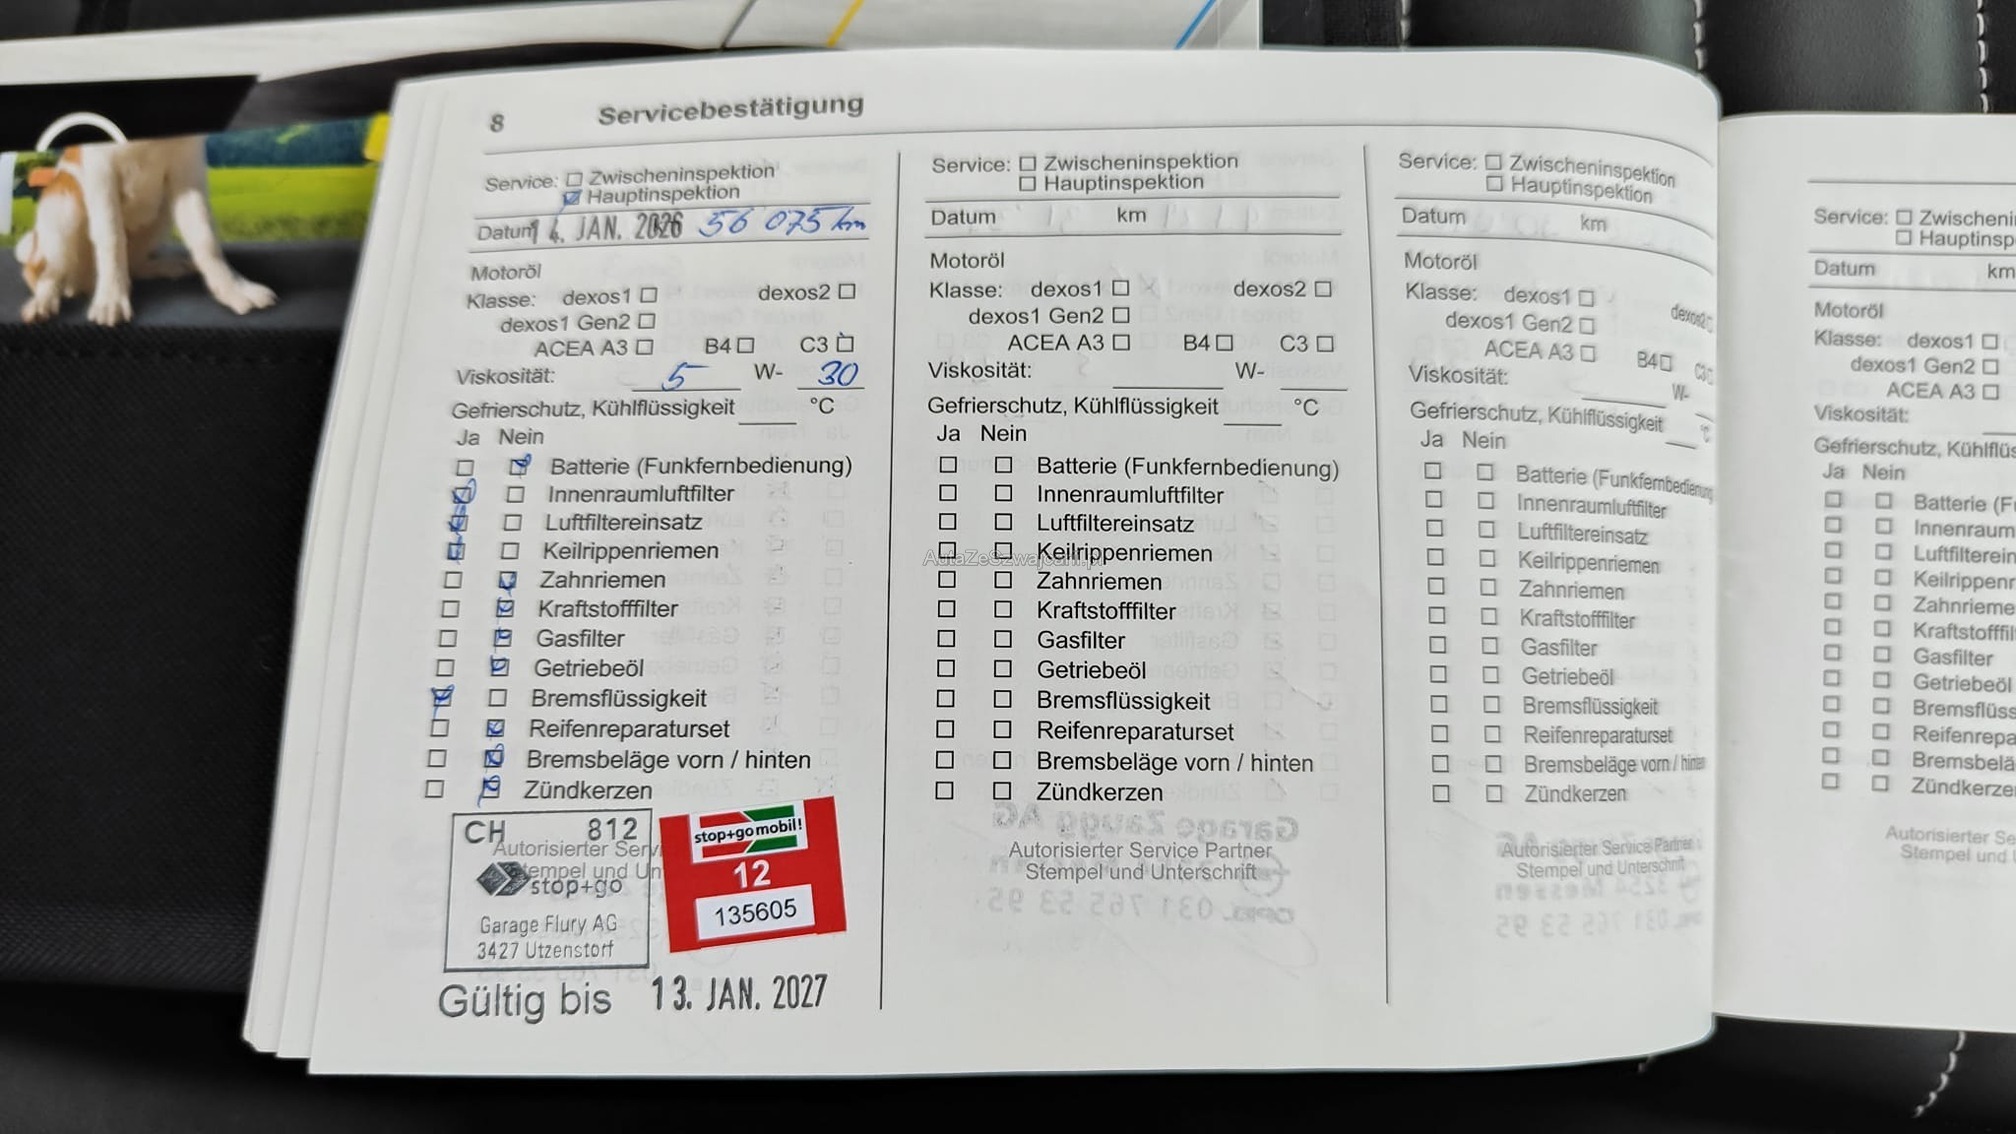 8 Servicebestätigung
Service: Zwischeninspektion
Hauptinspektion
Datum 14. JAN. 2026 56 075 km
Motoröl
Klasse: dexos1 dexos2
dexos1 Gen2
ACEA A3 B4 C3
Viskosität: 5 W- 30
Gefrierschutz, Kühlflüssigkeit °C
Ja Nein
Batterie (Funkfernbedienung)
Innenraumluftfilter
Luftfiltereinsatz
Keilrippenriemen
Zahnriemen
Kraftstofffilter
Gasfilter
Getriebeöl
Bremsflüssigkeit
Reifenreparaturset
Bremsbeläge vorn / hinten
Zündkerzen
CH 812
Autorisierter Serv
tempel und Un
stop+go
Garage Flury AG
3427 Utzenstorf
stop+go mobil!
12
135605
Gültig bis 13. JAN. 2027
Service: Zwischeninspektion
Hauptinspektion
Datum km
Motoröl
Klasse: dexos1 dexos2
dexos1 Gen2
ACEA A3 B4 C3
Viskosität: W-
Gefrierschutz, Kühlflüssigkeit °C
Ja Nein
Batterie (Funkfernbedienung)
Innenraumluftfilter
Luftfiltereinsatz
AutaZeSzwajcarii.pl
Keilrippenriemen
Zahnriemen
Kraftstofffilter
Gasfilter
Getriebeöl
Bremsflüssigkeit
Reifenreparaturset
Bremsbeläge vorn / hinten
Zündkerzen
Autorisierter Service Partner
Stempel und Unterschrift
Service: Zwischeninspektion
Hauptinspektion
Datum km
Motoröl
Klasse: dexos1 dexos2
dexos1 Gen2
ACEA A3 B4 C3
Viskosität: W-
Gefrierschutz, Kühlflüssigkeit °C
Ja Nein
Batterie (Funkfernbedienung
Innenraumluftfilter
Luftfiltereinsatz
Keilrippenriemen
Zahnriemen
Kraftstofffilter
Gasfilter
Getriebeöl
Bremsflüssigkeit
Reifenreparaturset
Bremsbeläge vorn / hinten
Zündkerzen
Autorisierter Service Partner
Stempel und Unterschrift
Service: Zwischeni
Hauptinsp
Datum km
Motoröl
Klasse: dexos1
dexos1 Gen2
ACEA A3
Viskosität:
Gefrierschutz, Kühlflüs
Ja Nein
Batterie (F
Innenraum
Luftfilterein
Keilrippenr
Zahnrieme
Kraftstofffil
Gasfilter
Getriebeöl
Bremsflüss
Reifenrepa
Bremsbelä
Zündkerze
Autorisierter Se
Stempel und